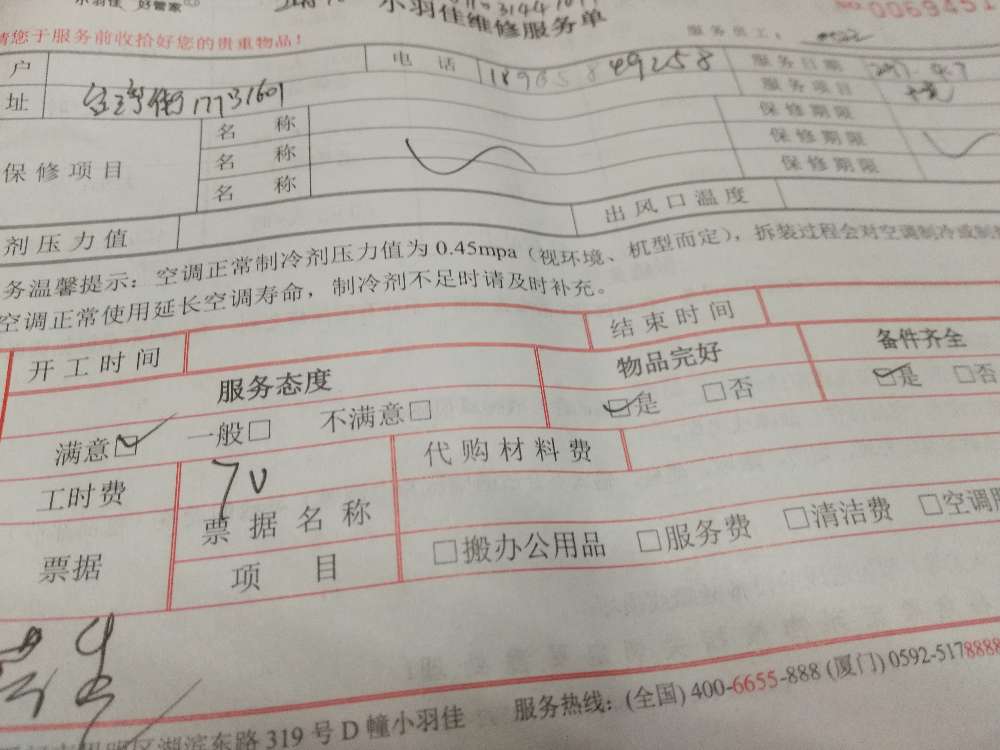 小羽佳 好管家
小羽佳维修服务单
NO.0069451
请您于服务前收拾好您的贵重物品!
服务员工:
户 电 话 18965849258 服务日期
址 177号1601 服务项目
保修项目 名 称 保修期限
名 称 保修期限
名 称 保修期限
剂压力值 出风口温度
务温馨提示:空调正常制冷剂压力值为0.45mpa(视环境、机型而定),拆装过程会对空调制冷或制
空调正常使用延长空调寿命,制冷剂不足时请及时补充。
开工时间 结束时间
服务态度 物品完好 备件齐全
满意☑ 一般□ 不满意□ ☑是 □否 ☑是 □否
工时费 70 代购材料费
票据 票据名称 □搬办公用品 □服务费 □清洁费 □空调
项 目
湖滨东路319号D幢小羽佳 服务热线:(全国)400-6655-888(厦门)0592-5178888